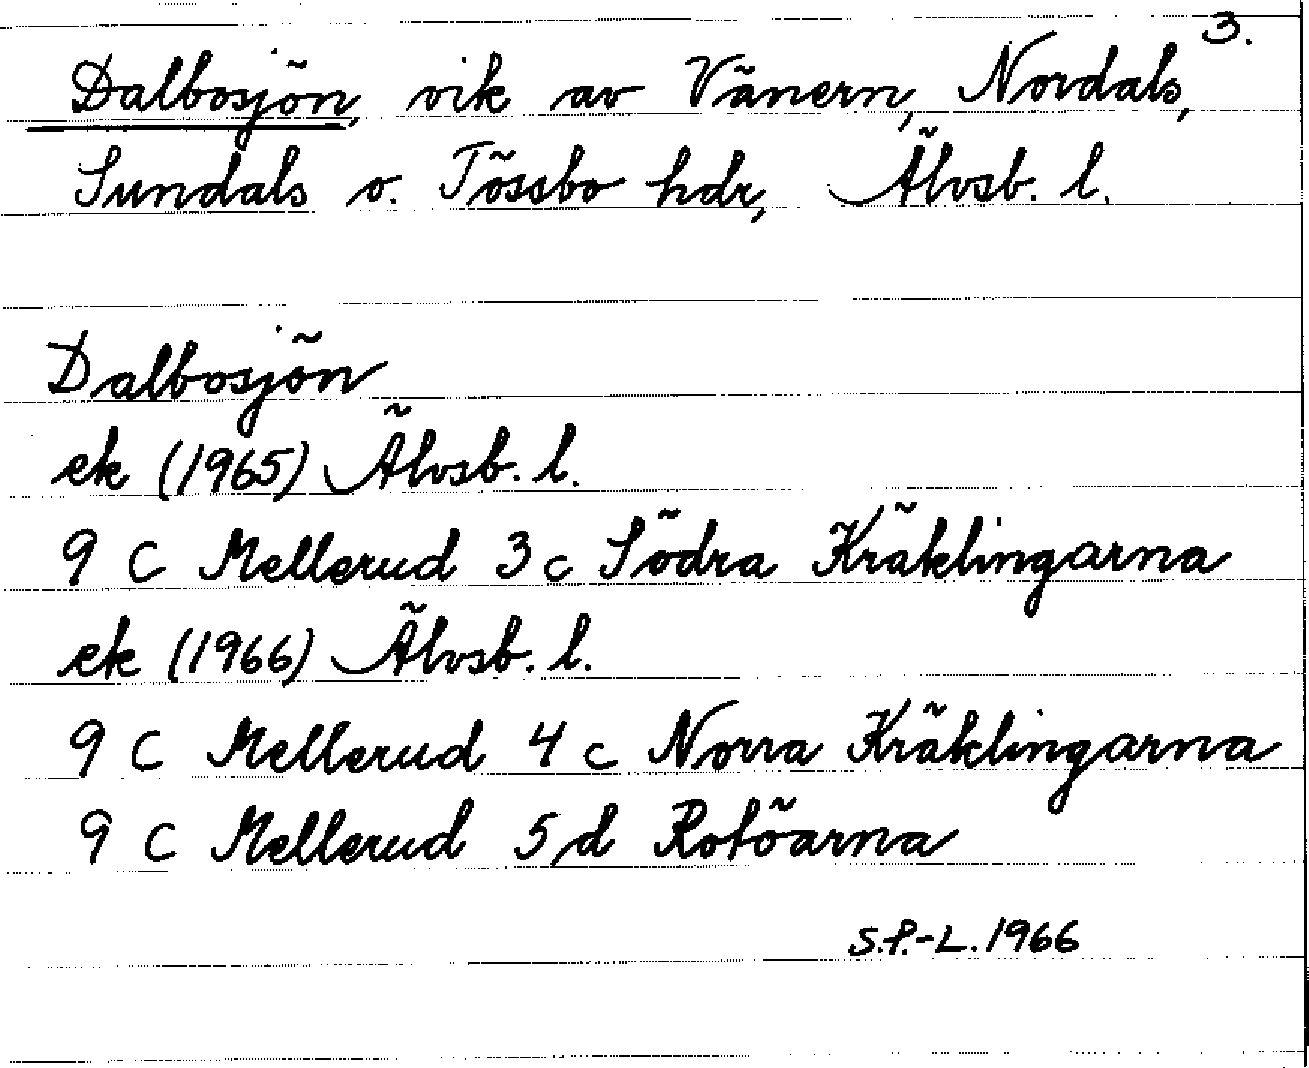 3.
Dalbosjön, vik av Vänern, Nordals,
Sundals o. Tössbo hdr, Älvsb. l.
Dalbosjön
ek (1965) Älvsb. l.
9 C Mellerud 3 c Södra Kräklingarna
ek (1966) Älvsb. l.
9 C Mellerud 4 c Norra Kräklingarna
9 C Mellerud 5 d Rotöarna
S.P.-L. 1966